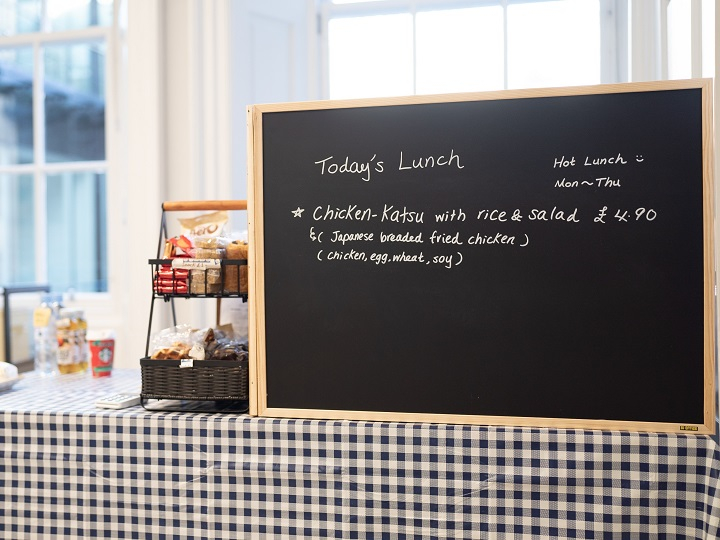 Today's Lunch
Hot Lunch
Mon~Thu
☆ Chicken-Katsu with rice & salad £4.90
↳( Japanese breaded fried chicken )
( chicken, egg, wheat, soy )
aero